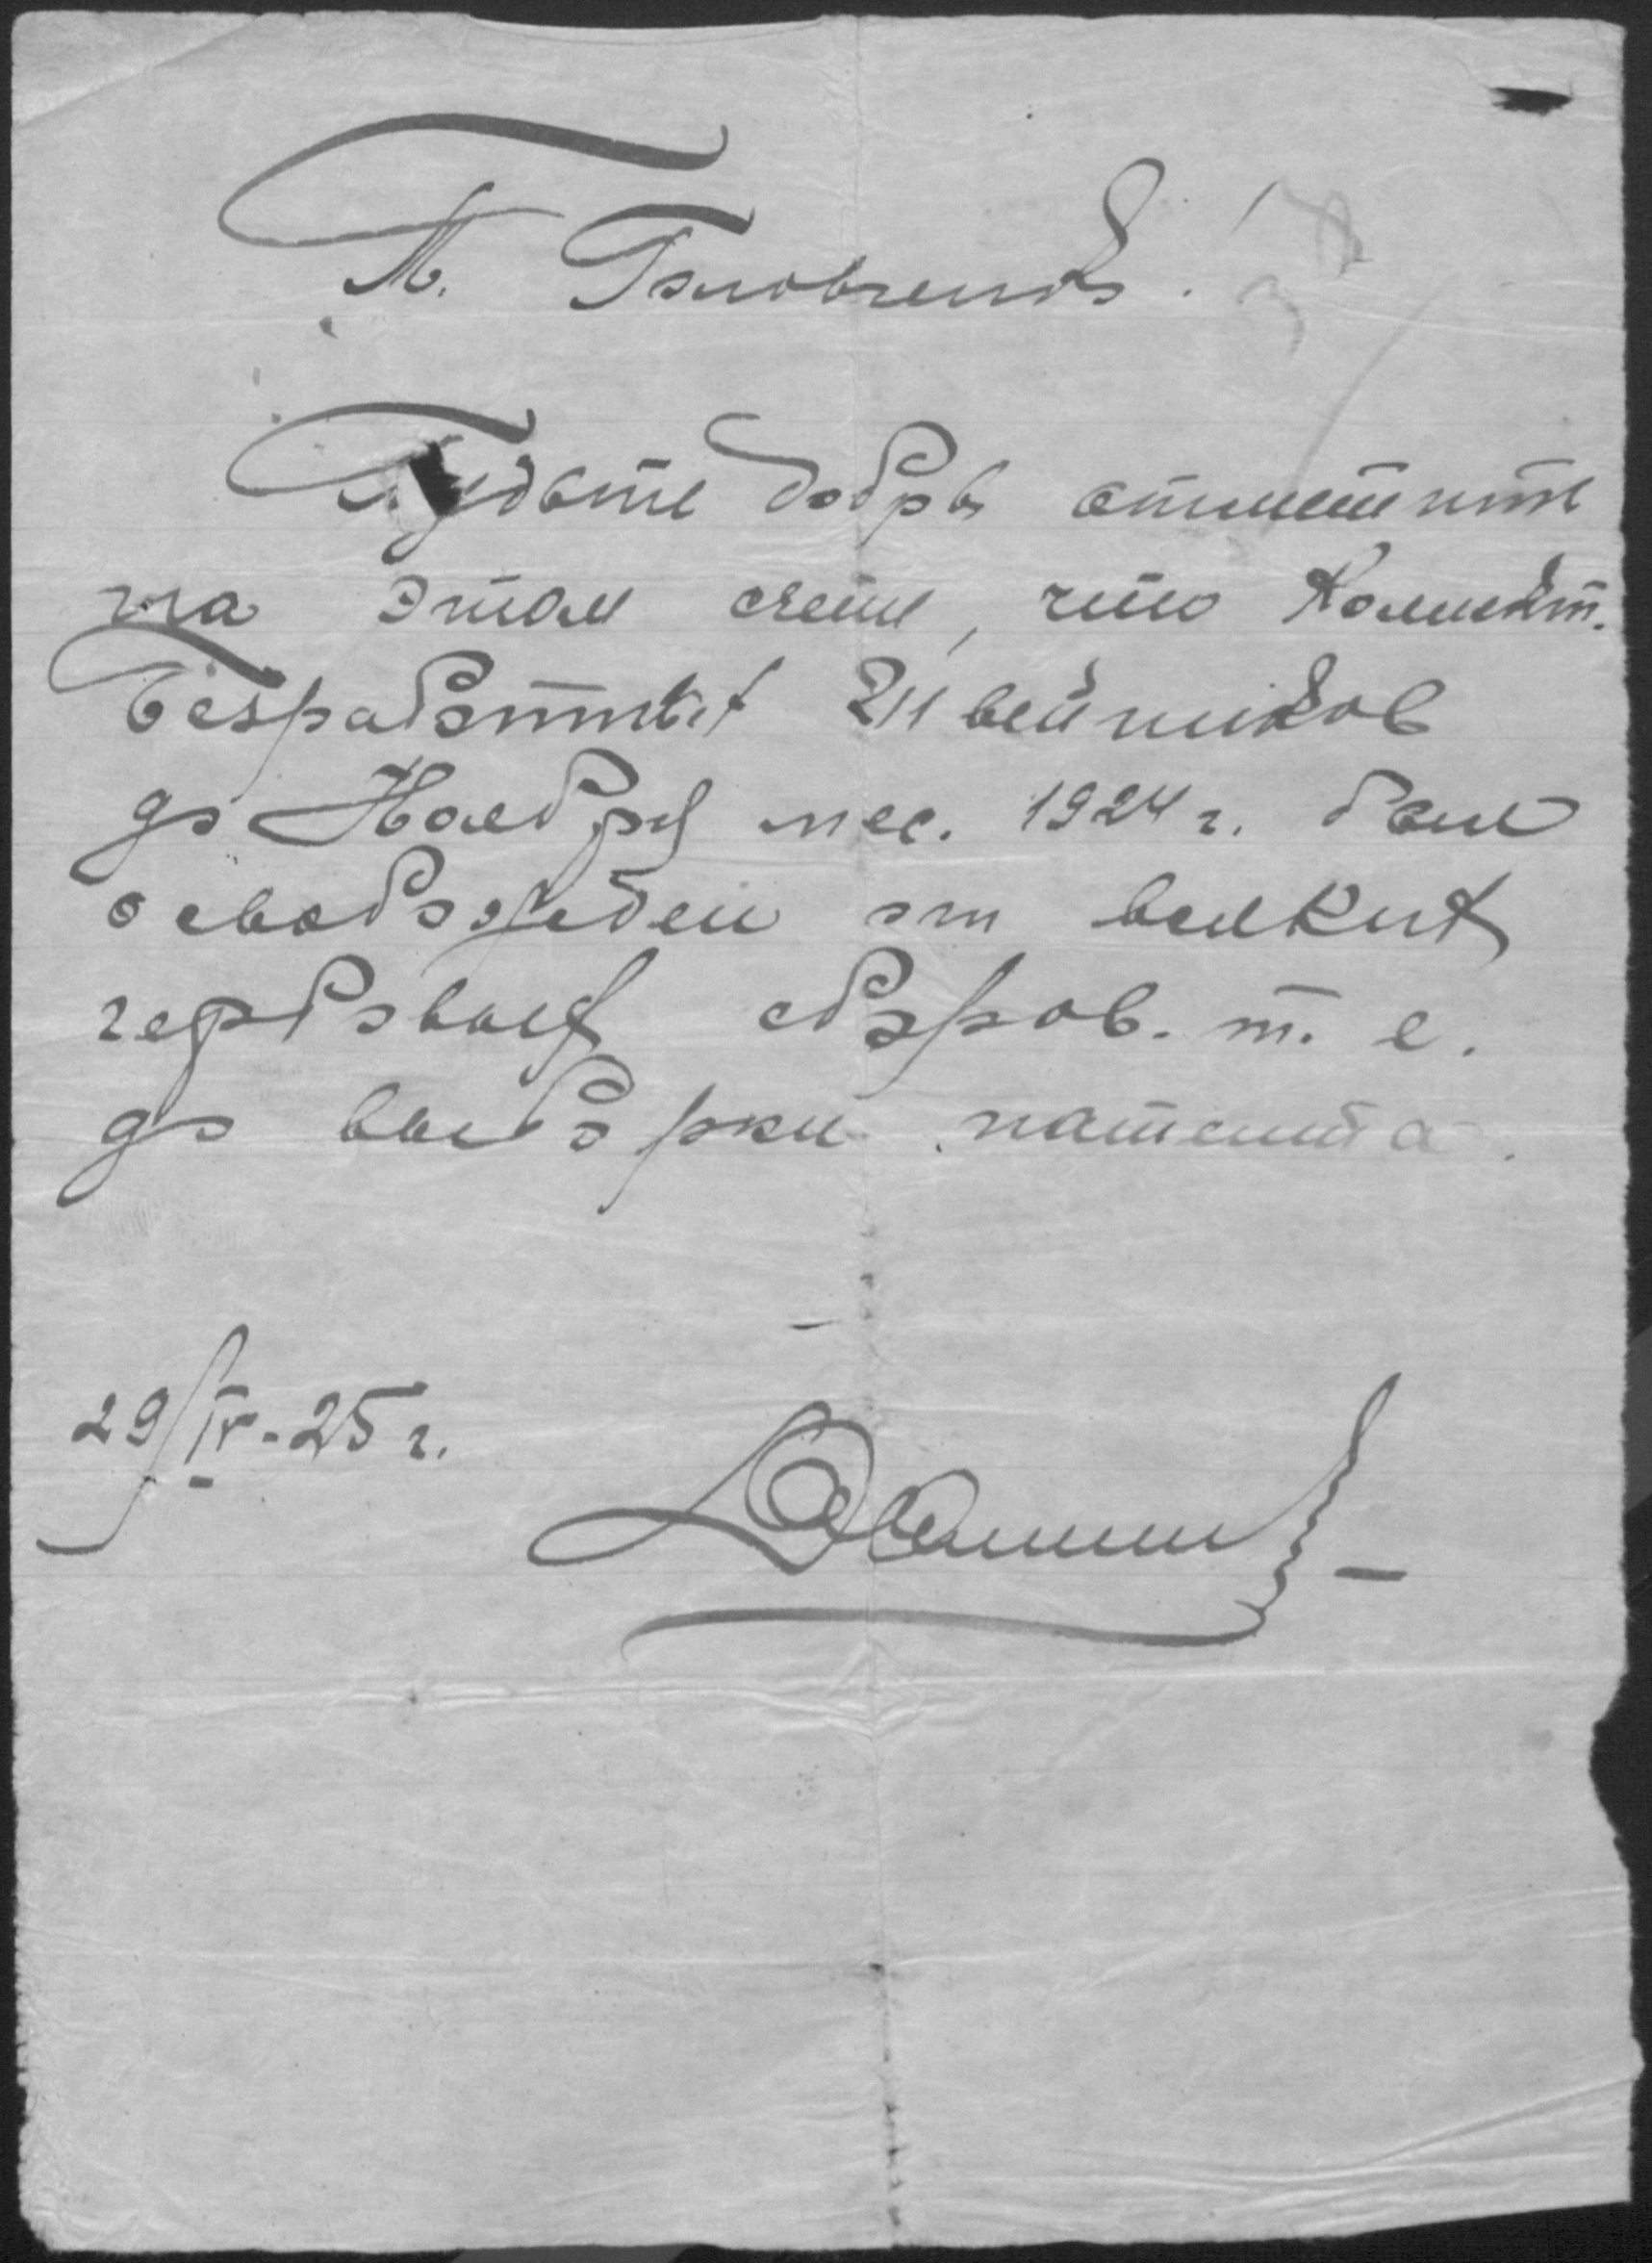 Т. Головченко.
Будьте добры отметить
на этом счете, что Коллект.
Безработных Швейников
до Ноября мес. 1924 г. был
освобожден от всяких
гербовых сборов. т. е.
до выборки патента.
29/IV-25 г.